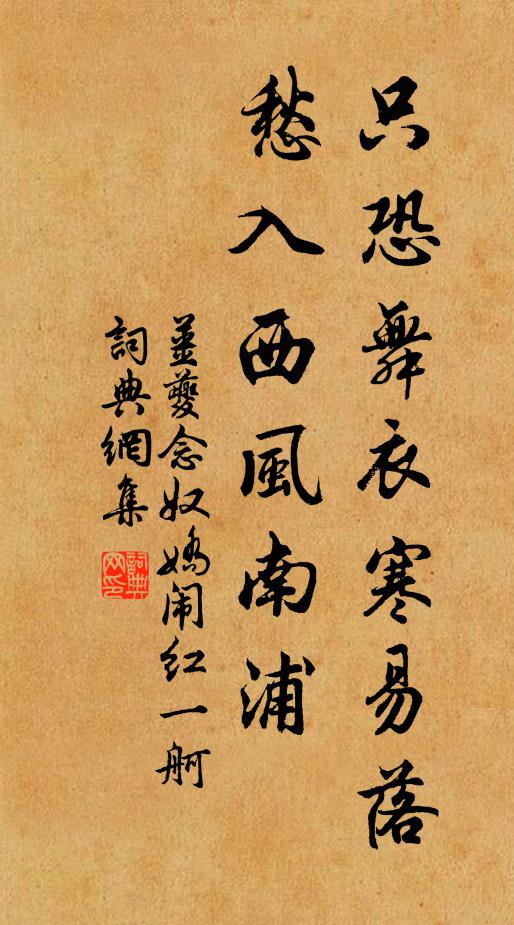 只恐舞衣寒易落
愁入西風南浦
姜夔念奴嬌闹红一舸
詞典網集
詞典网印